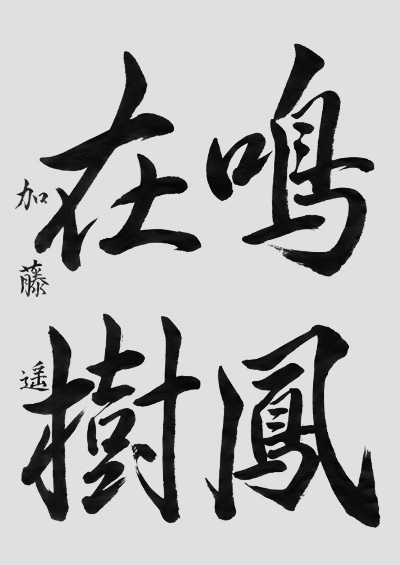 鳴鳳
在樹
加藤遥